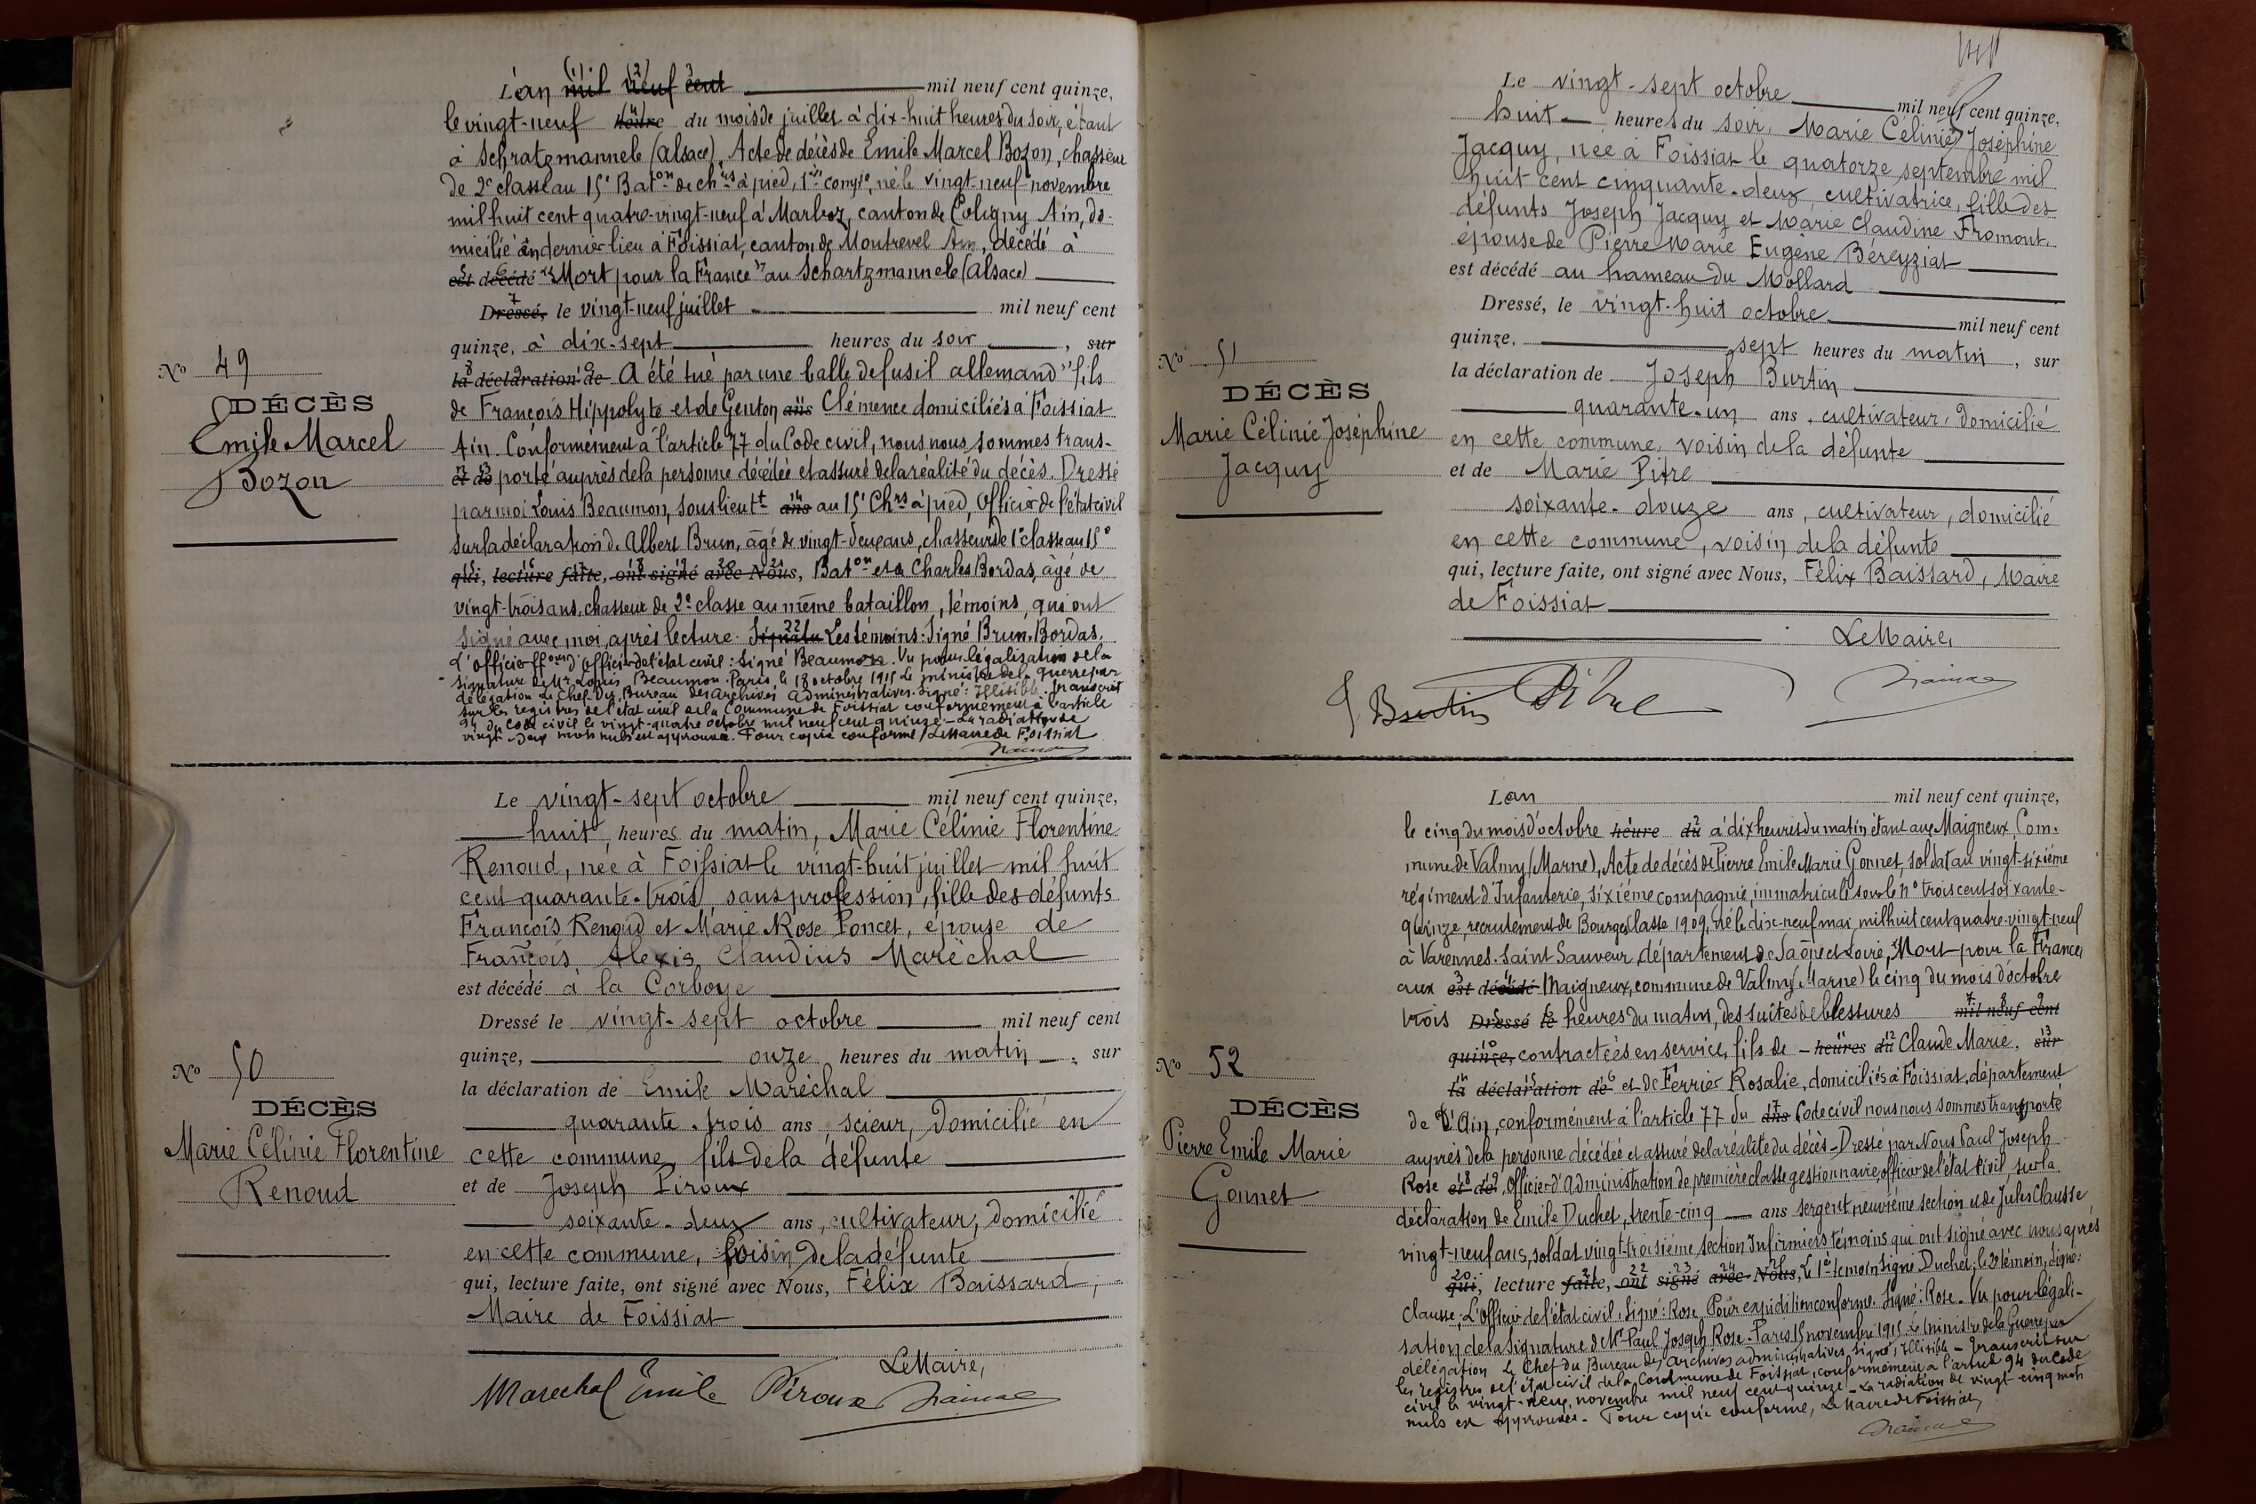 L'an mil neuf cent mil neuf cent quinze,
le vingt-neuf heure du mois de juillet à dix-huit heures du soir, étant
à Schratzmannele (Alsace), Acte de décès de Emile Marcel Bozon, chasseur
de 2e classe au 15e Baton de chrs à pied, 1re compie, né le vingt-neuf novembre
mil huit cent quatre-vingt-neuf à Marboz, canton de Coligny Ain, do-
micilié en dernier lieu à Foissiat, canton de Montrevel Ain, décédé à
est décédé "Mort pour la France" au Schartzmannele (Alsace)
Dressé, le vingt-neuf juillet mil neuf cent
quinze, à dix-sept heures du soir, sur
la déclaration de A été tué par une balle de fusil allemand" fils
de François Hippolyte et de Genton ans Clémence domiciliés à Foissiat
Ain. Conformément à l'article 77 du Code civil, nous nous sommes trans-
et de porté auprès de la personne décédée et assuré de la réalité du décès. Dressé
par moi Louis Beaumon, sous lieutt ans au 15e Chrs à pied, Officier de l'état civil
sur la déclaration de Albert Brun, âgé de vingt-deux ans, chasseur de 1e classe au 15e
qui, lecture faite, ont signé avec Nous, Baton et à Charles Bordas, âgé de
vingt-trois ans, chasseur de 2e classe au même bataillon, témoins, qui ont
signé avec moi, après lecture. Signatu Les témoins: Signé Brun, Bordas.
L'officier ffons d'officier de l'état civil: Signé Beaumon. Vu pour légalisation de la
signature de Mr Louis Beaumon. Paris, le 18 octobre 1915 Le Ministre de la guerre par
délégation Le Chef du Bureau des Archives Administratives. Signé: Illisible. Transcrit
sur les registres de l'état civil de la Commune de Foissiat conformément à l'article
94 du Code civil le vingt-quatre octobre mil neuf cent quinze - La radiation de
vingt-deux mots nuls est approuvée. Pour copie conforme, Le Maire de Foissiat
No 49
DÉCÈS
Emile Marcel
Bozon
Le vingt-sept octobre mil neuf cent quinze,
huit, heures du matin, Marie Célinie Florentine
Renoud, née à Foissiat le vingt-huit juillet mil huit
cent quarante-trois, sans profession, fille des défunts
François Renoud et Marie Rose Poncet, épouse de
François Alexis Claudius Maréchal
est décédé à la Corboye
Dressé le vingt-sept octobre mil neuf cent
quinze, onze heures du matin, sur
la déclaration de Emile Maréchal
quarante-trois ans, scieur, domicilié en
cette commune, fils de la défunte
et de Joseph Piroux
soixante-deux ans, cultivateur, domicilié
en cette commune, voisin de la défunte
qui, lecture faite, ont signé avec Nous, Félix Baissard,
Maire de Foissiat
Le Maire,
Marechal Emile Piroux
No 50
DÉCÈS
Marie Célinie Florentine
Renoud
Le vingt-sept octobre mil neuf cent quinze,
huit heures du soir, Marie Célinie Joséphine
Jacquy, née à Foissiat le quatorze septembre mil
huit cent cinquante-deux, cultivatrice, fille des
défunts Joseph Jacquy et Marie Claudine Fromont,
épouse de Pierre Marie Eugène Béreyziat
est décédé au hameau du Mollard
Dressé, le vingt-huit octobre mil neuf cent
quinze, sept heures du matin, sur
la déclaration de Joseph Burtin
quarante-un ans, cultivateur, domicilié
en cette commune, voisin de la défunte
et de Marie Pitre
soixante-douze ans, cultivateur, domicilié
en cette commune, voisin de la défunte
qui, lecture faite, ont signé avec Nous, Félix Baissard, Maire
de Foissiat
Le Maire,
J Burtin Pitre
No 51
DÉCÈS
Marie Célinie Joséphine
Jacquy
L'an mil neuf cent quinze,
le cinq du mois d'octobre heure du à dix heures du matin étant aux Maigneux, Com-
mune de Valmy (Marne), Acte de décès de Pierre Emile Marie Gonnet, soldat au vingt-sixième
régiment d'Infanterie, sixième compagnie, immatriculé sous le no trois cent soixante-
quinze, recrutement de Bourg classe 1909, né le dix-neuf mai mil huit cent quatre-vingt-neuf
à Varennes-Saint Sauveur, département de Saône et Loire, "Mort pour la France,
aux est décédé Maigneux, commune de Valmy (Marne) le cinq du mois d'octobre
trois Dressé le heures du matin, des suites de blessures mil neuf cent
quinze, contractées en service, fils de heures du Claude Marie, sur
la déclaration de et de Ferrier Rosalie, domiciliés à Foissiat, département
de l'Ain, conformément à l'article 77 du ans Code civil nous nous sommes transporté
auprès de la personne décédée et assuré de la réalité du décès - Dressé par Nous Paul Joseph
Rose et de, Officier d'administration de première classe gestionnaire, officier de l'état civil, sur la
déclaration de Emile Duchet, trente-cinq ans sergent, neuvième section et de Jules Clausse
vingt-neuf ans, soldat vingt-troisième section Infirmiers témoins qui ont signé avec nous après
qui, lecture faite, ont signé avec Nous, Le 1e témoin signé Duchet, le 2e témoin, Signé:
Clausse, L'officier de l'état civil. Signé: Rose Pour expédition conforme. Signé: Rose. Vu pour légali-
sation de la signature de Mr Paul Joseph Rose - Paris 15 novembre 1915 Le Ministre de la Guerre par
délégation Le Chef du Bureau des Archives administratives. Signé, Illisible - Transcrit sur
les registres de l'état civil de la Commune de Foissiat, conformément à l'article 94 du Code
civil le vingt-deux novembre mil neuf cent quinze - La radiation de vingt-cinq mots
nuls est approuvée. Pour copie conforme, Le Maire de Foissiat,
No 52
DÉCÈS
Pierre Emile Marie
Gonnet